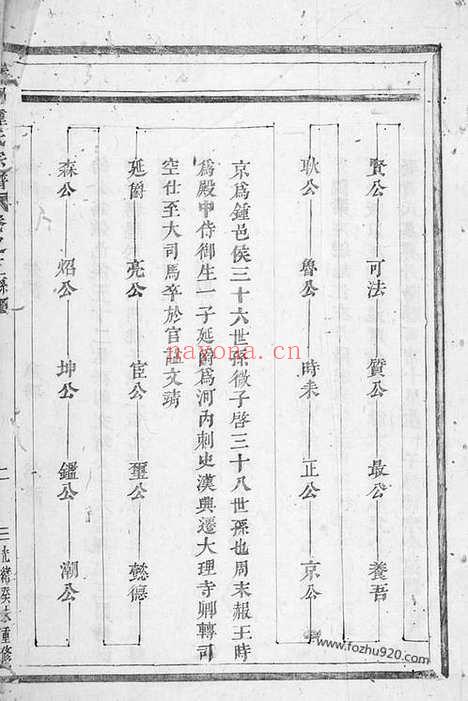 賢公 可法 質公 最公 養吾
耿公 魯公 時耒 正公 京公
京爲鍾邑侯三十六世孫微子啓三十八世孫也周末赧王時
爲殿中侍御生一子延爵爲河內刺史漢興遷大理寺卿轉司
空仕至大司馬卒於官謚文靖
延爵 亮公 宦公 璽公 懿德
森公 炤公 坤公 鑑公 潮公
氏宗譜 卷之
二
光緒癸未重修
nayona.cn
www.fozhu920.com